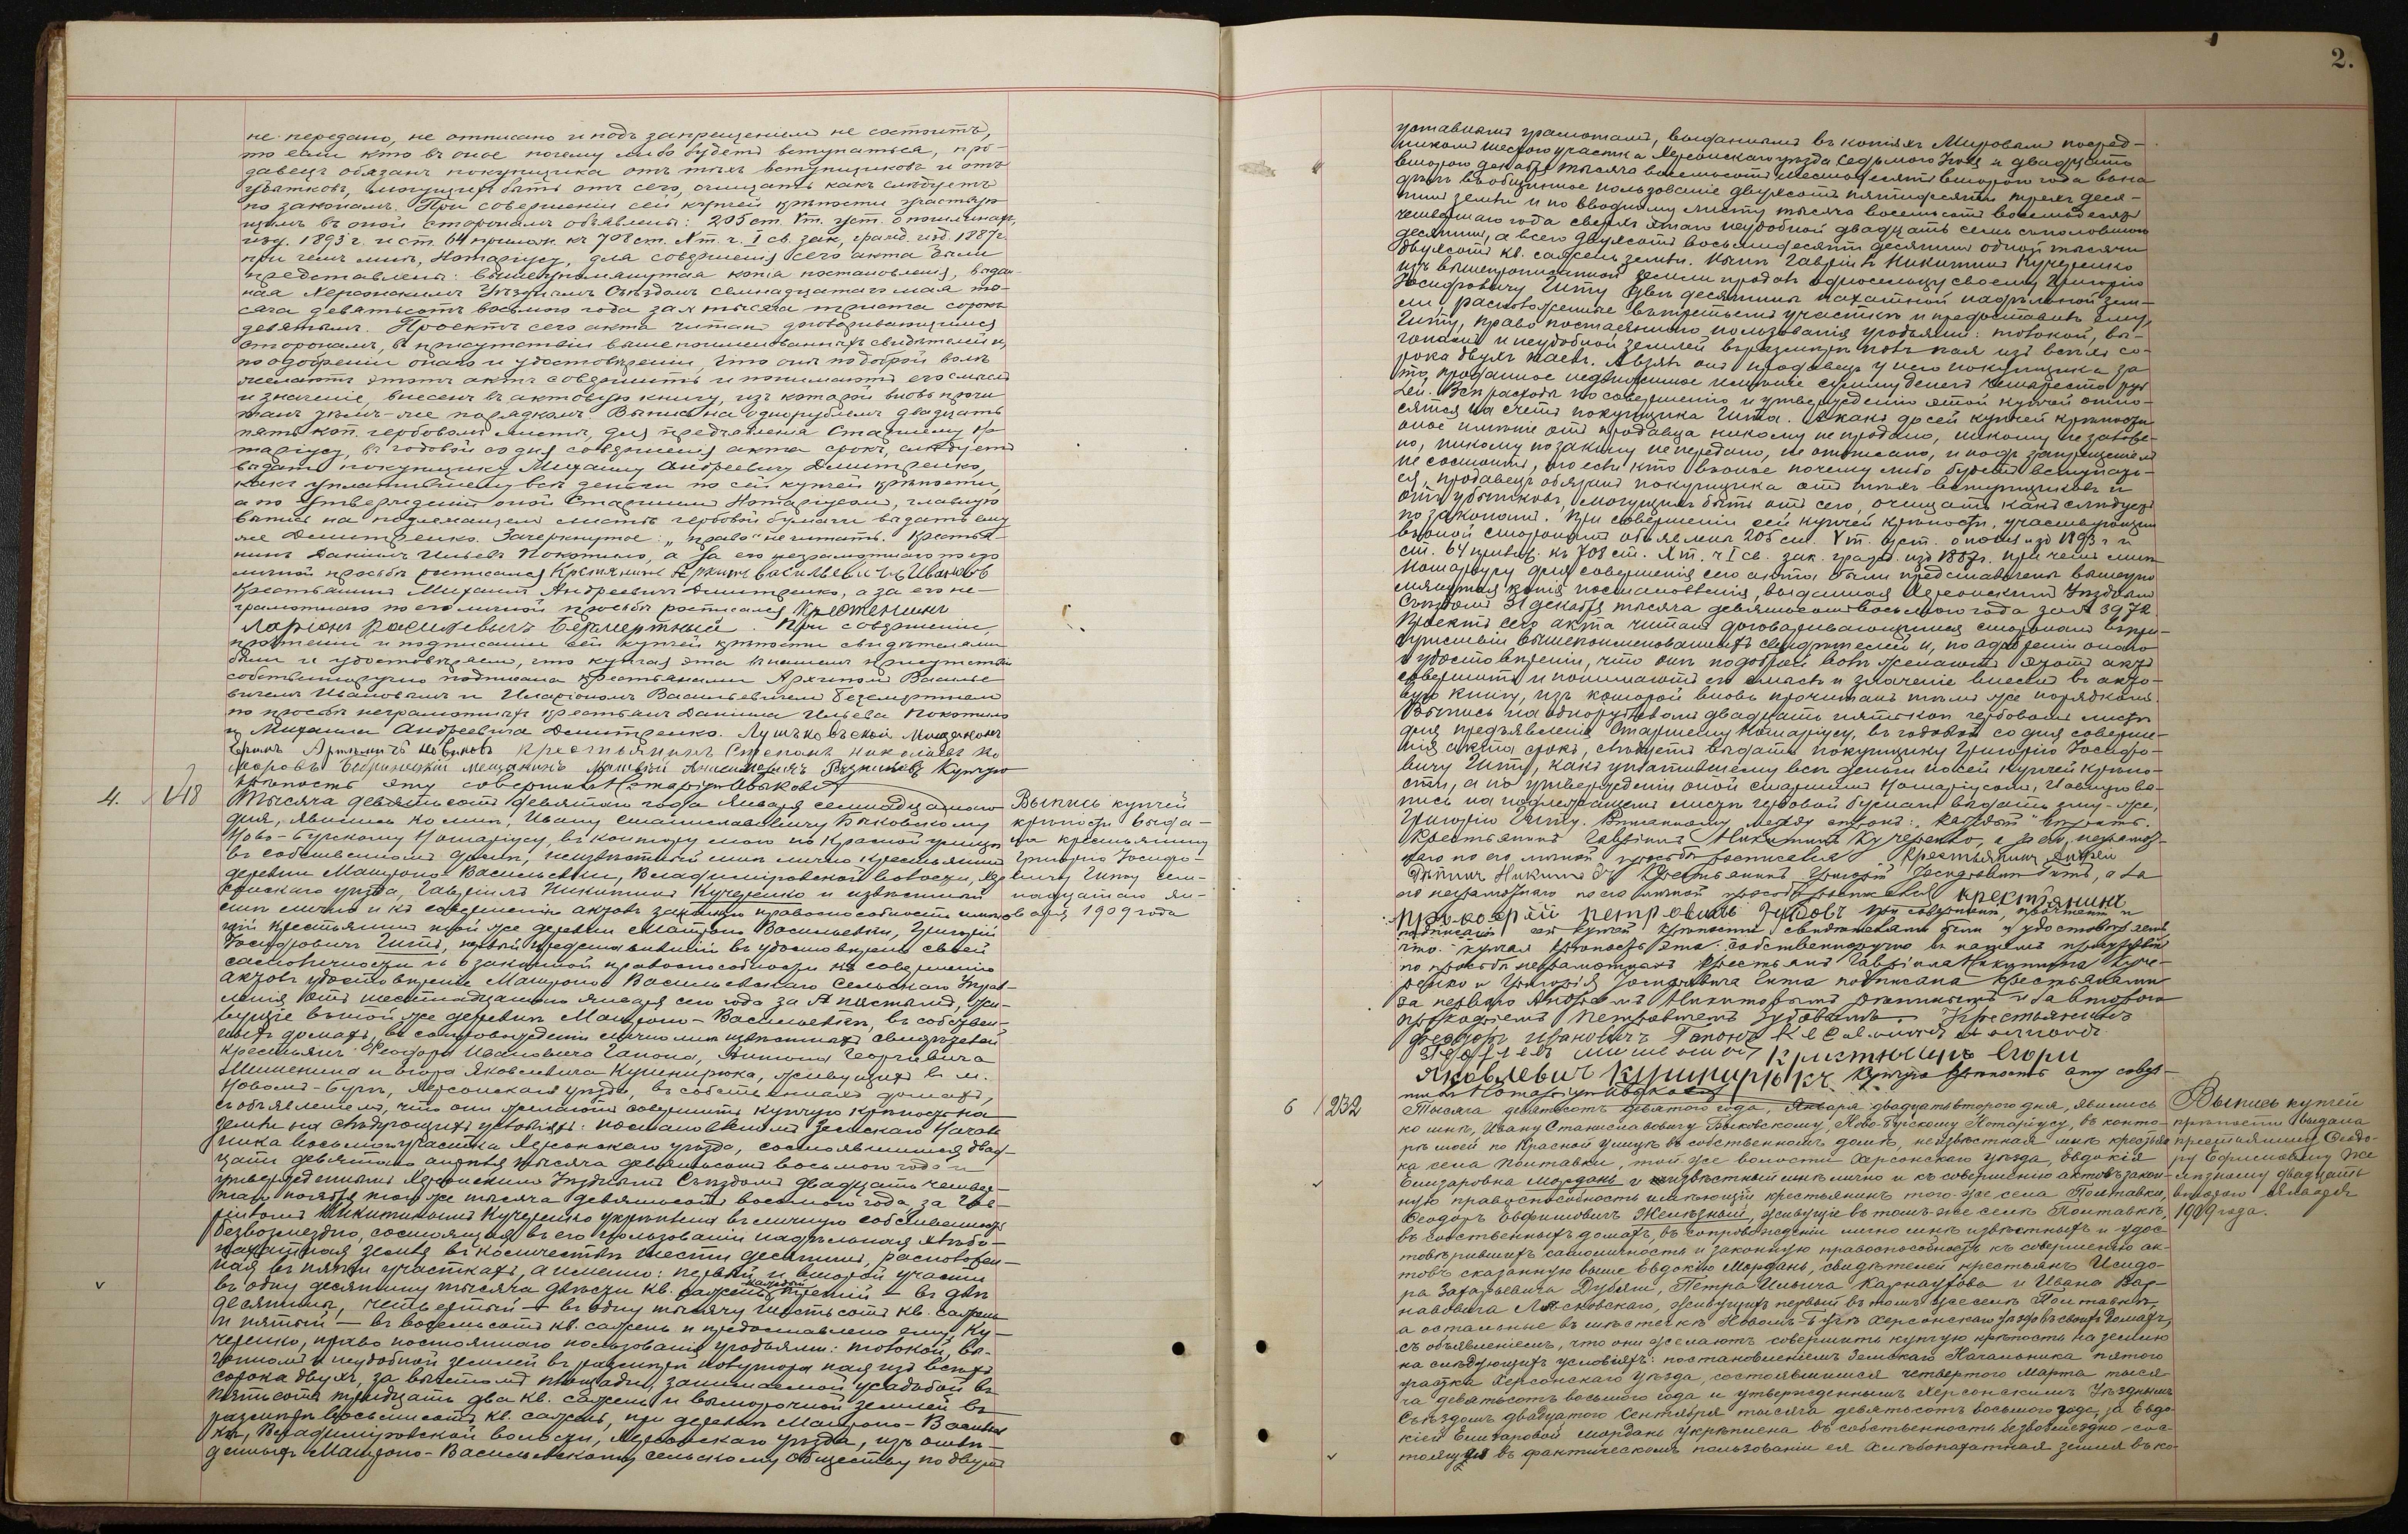 не передано, не отписано и подъ запрещеніемъ не состоитъ,
то если кто въ оное почему либо будетъ вступаться, про-
давецъ обязанъ покупщика отъ тѣхъ вступщиковъ и отъ
убытковъ, могущихъ быть отъ сего, очищать какъ слѣдуетъ
по законамъ. При совершеніи сей купчей крѣпости участвую
щимъ въ оной сторонамъ объявлены: 205 ст. V т. уст. о пошлинахъ,
изд. 1893 г. и ст. 64 прилож. къ 708 ст. X т. ч. I св. зак. гражд. изд. 1887 г.
при чемъ мнѣ, Нотаріусу, для совершенія сего акта были
представлены: вышеупомянутая копія постановленія, выдан
ная Херсонскимъ Уѣзднымъ Съѣздомъ семнадцатаго мая ты-
сяча девятьсотъ восьмого года за № тысяча триста сорокъ
девятымъ. Проектъ сего акта читанъ договаривающимся
сторонамъ, въ присутствіи вышепоименованныхъ свидѣтелей и,
по одобреніи онаго и удостовѣреніи, что они по доброй волѣ
желаютъ этотъ актъ совершить и понимаютъ его смыслъ
и значеніе, внесенъ въ актовую книгу, изъ которой вновь прочи
танъ тѣмъ-же порядкомъ. Выпись на однорублевомъ двадцать
пять коп. гербовомъ листѣ, для представленія Старшему Но
таріусу, въ годовой со дня совершенія акта срокъ, слѣдуетъ
выдать покупщику Михаилу Андреевичу Дмитренко,
какъ уплатившему всѣ деньги по сей купчей крѣпости,
а по утвержденіи оной Старшимъ Нотаріусомъ, главную
выпись на подлежащемъ листѣ гербовой бумаги выдать ему
же Дмитренко. Зачеркнутое: „право" не читать. Крестья-
нинъ Даніилъ Ильевъ Покотило, а за его неграмотнаго по его
личной просьбѣ росписался Крестянинъ Архипъ Васильевичъ Ивановъ
Крестьянинъ Михаилъ Андреевичъ Дмитренко, а за его не-
грамотнаго по его личной просьбѣ росписался
Ларіонъ Васильевичъ Безмертный. При совершеніи,
прочтеніи и подписаніи сей купчей крѣпости свидѣтелями
были и удостовѣряемъ, что купчая эта въ нашемъ присутствіи
собственноручно подписана крестьянами Архипомъ Василье
вичемъ Ивановымъ и Иларіономъ Васильевичемъ Безсмертнымъ
по просьбѣ неграмотныхъ крестьянъ Даніила Ильева Покотило
и Михаила Андреевича Дмитренко.
крестьянинъ Степанъ Николаевъ
мещанинъ Купчую
крѣпость эту совершилъ Нотаріусъ Быковскій
4. 148
Тысяча девятьсотъ девятаго года Января семнадцатаго
дня, явились ко мнѣ, Ивану Станиславовичу Быковскому
Ново-Бугскому Нотаріусу, въ контору мою по Красной улицѣ
въ собственномъ домѣ, неизвѣстный мнѣ лично крестьянинъ
деревни Матроно-Васильевки, Владиміровской волости, Хер
сонскаго уѣзда, Гавріилъ Никитинъ Кучеренко и извѣстный
мнѣ лично и къ совершенію актовъ законную правоспособность имѣю
щій крестьянинъ той же деревни Матроно Васильевки, Григорій
Іосифовичъ Гитъ, первый представившій въ удостовѣреніе своей
самоличности и о законной правоспособности къ совершенію
актовъ удостовѣреніе Матроно Васильевскаго Сельскаго Управ-
ленія отъ шестнадцатаго января сего года за № пятымъ, жи-
вущіе въ той же деревнѣ Матроно-Васильевкѣ, въ собствен-
ныхъ домахъ, въ сопровожденіи лично мнѣ извѣстныхъ свидѣтелей
крестьянъ Феодора Ивановича Гапона, Антона Георгіевича
Мишенина и Егора Яковлевича Кушнирюка, живущихъ въ м.
Новомъ-Бугѣ, Херсонскаго уѣзда, въ собственныхъ домахъ,
съ объявленіемъ, что они желаютъ совершить купчую крѣпость на
землю на слѣдующихъ условіяхъ: постановленіемъ Земскаго Началь
ника восьмого участка Херсонскаго уѣзда, состоявшимся двад-
цать девятаго апрѣля тысяча девятьсотъ восьмого года и
утвержденнымъ Херсонскимъ Уѣзднымъ Съѣздомъ двадцать четвер-
таго ноября того же тысяча девятьсотъ восьмого года, за Гав-
ріиломъ Никитинымъ Кучеренко укрѣплена въ личную собственность
безвозмездно, состоящая въ его пользованіи надѣльная хлѣбо-
пахатная земля въ количествѣ шести десятинъ, расположен-
ная въ пяти участкахъ, а именно: первый и второй участки
въ одну десятину тысяча двѣсти кв. сажень каждый, третій — въ двѣ
десятины, четвертый — въ одну тысячу шестьсотъ кв. сажень
и пятый — въ восемьсотъ кв. сажень и предоставлено ему, Ку-
черенко, право постояннаго пользованія угодьями: толокой, вы-
гономъ и неудобной землей въ размѣрѣ полутора пая изъ всѣхъ
сорока двухъ, за вычетомъ площади, занимаемой усадьбой въ
пятьсотъ тридцать два кв. сажень и выморочной землей въ
размѣрѣ восьмисотъ кв. сажень, при деревнѣ Матроно-Васильев
кѣ, Владиміровской волости, Херсонскаго уѣзда, изъ отве-
денныхъ Матроно-Васильевскому сельскому обществу по двумъ
Выпись купчей
крѣпости выда-
на крестьянину
Григорію Іосифо-
вичу Гиту сем-
надцатаго ян-
варя 1909 года
2.
уставнымъ грамотамъ, выданнымъ въ копіяхъ Мировымъ посред-
никомъ шестого участка Херсонскаго уѣзда седьмого Іюля и двадцать
второго декабря тысяча восемьсотъ шестьдесятъ второго года
въ общинное пользованіе двухсотъ пятидесяти трехъ деся-
тинъ земли и по вводному листу тысяча восемьсотъ восемьдесятъ
четвертаго года сверхъ этаго неудобной двадцать семь съ половиною
десятинъ, а всего двухсотъ восьмидесяти десятинъ одной тысячи
двухсотъ кв. сажень земли. Нынѣ Гавріилъ Никитинъ Кучеренко
изъ вышеописанной земли продалъ односельцу своему Григорію
Іосифовичу Гиту двѣ десятины пахатной надѣльной зем-
ли, расположенные въ третьемъ участкѣ и предоставилъ ему,
Гиту, право постояннаго пользованія угодьями: толокой, вы-
гономъ и неудобной землей въ размѣрѣ полъ пая изъ всѣхъ со-
рока двухъ паевъ. А взялъ онъ продавецъ у него покупщика за
то проданное недвижимое имѣніе сумму денегъ четыреста руб
лей. Всѣ расходы по совершенію и утвержденію этой купчей отно-
сятся на счетъ покупщика Гита. А какъ до сей купчей крѣпости
оное имѣніе отъ продавца никому не продано, никому не заложе-
но, никому по закону не передано, не отписано, и подъ запрещеніемъ
не состоитъ, то если кто въ оное почему либо будетъ вступать-
ся, продавецъ обязанъ покупщика отъ тѣхъ вступщиковъ и
отъ убытковъ, могущихъ быть отъ сего, очищать какъ слѣдуетъ
по законамъ. При совершеніи сей купчей крѣпости, участвующимъ
въ оной сторонамъ объявлены 205 ст. V т. уст. о пошл. изд. 1893 г. и
ст. 64 прилож. къ 708 ст. X т. ч. I св. зак. гражд. изд. 1887 г. при чемъ мнѣ
Нотаріусу для совершенія сего акта, были представлены вышеупо
мянутая копія постановленія, выданная Херсонскимъ Уѣзднымъ
Съѣздомъ 31 декабря тысяча девятьсотъ восьмого года за № 3972.
Проектъ сего акта читанъ договаривающимся сторонамъ въ при-
сутствіи вышепоименованныхъ свидѣтелей и, по одобреніи онаго
и удостовѣреніи, что они по доброй волѣ желаютъ этотъ актъ
совершить и понимаютъ его смыслъ и значеніе внесенъ въ акто-
вую книгу, изъ которой вновь прочитанъ тѣмъ же порядкомъ.
Выпись на однорублевомъ двадцать пять коп. гербовомъ листѣ
для предъявленія Старшему Нотаріусу, въ годовой со дня соверше-
нія акта срокъ, слѣдуетъ выдать покупщику Григорію Іосифо-
вичу Гиту, какъ уплатившему всѣ деньги по сей купчей крѣпо-
сти, а по утвержденіи оной старшимъ Нотаріусомъ, главную вы-
пись на подлежащемъ листѣ гербовой бумаги выдать ему-же,
Григорію Гиту. Вписанному между строкъ: „каждый" вѣрить.
Крестьянинъ Гавріилъ Никитинъ Кучеренко, а за его, неграмот-
наго по его личной просьбѣ росписался Крестьянинъ
Никитовъ Крестьянинъ Григорій Іосифовичъ Гитъ, а за
его неграмотнаго по его личной просьбѣ росписался крестьянинъ
Прокофій Петровичъ Зубовъ При совершеніи, прочтеніи и
подписаніи сей купчей крѣпости свидѣтелями были и удостовѣряемъ,
что купчая крѣпость эта собственноручно въ нашемъ присутствіи
по просьбѣ неграмотныхъ крестьянъ Гавріила Никитина Куче-
ренко и Григорія Іосифовича Гита подписана крестьянами
за перваго Андреемъ Никитовымъ и за второго
Прокофіемъ Петровичемъ Зубовымъ. Крестьянинъ
Феодоръ Ивановичъ Гапонъ
Кристянинъ Егоръ
Яковлевич Кушнирюкъ Купчую крѣпость эту совер-
шилъ Нотаріусъ Быковскій
6 232
Тысяча девятьсотъ девятаго года, Января двадцать второго дня, явились
ко мнѣ, Ивану Станиславовичу Быковскому, Ново-Бугскому Нотаріусу, въ конто-
рѣ моей по Красной улицѣ въ собственномъ домѣ, неизвѣстная мнѣ крестьян
ка села Полтавки, той же волости Херсонскаго уѣзда, Евдокія
Елизаровна Мордань и извѣстный мнѣ лично и къ совершенію актовъ закон-
ную правоспособность имѣющій крестьянинъ того-же села Полтавки,
Феодоръ Евфимовичъ Желѣзный, живущіе въ томъ-же селѣ Полтавкѣ,
въ собственныхъ домахъ, въ сопровожденіи лично мнѣ извѣстныхъ и удос
товѣрившихъ самоличность и законную правоспособность къ совершенію ак-
товъ сказанную выше Евдокію Мордань, свидѣтелей крестьянъ Исидо-
ра Захарьевича Дубяги, Петра Ильича Карнаухова и Ивана Вар-
навовича Лясковскаго, живущихъ первый въ томъ же селѣ Полтавкѣ,
а остальные въ мѣстечкѣ Новомъ-Бугѣ Херсонскаго уѣзда въ своихъ домахъ,
съ объявленіемъ, что они желаютъ совершить купчую крѣпость на землю
на слѣдующихъ условіяхъ: постановленіемъ Земскаго Начальника пятого
участка Херсонскаго уѣзда, состоявшимся четвертого Марта тыся
ча девятьсотъ восьмого года и утвержденнымъ Херсонскимъ Уѣзднымъ
Съѣздомъ двадцатого Сентября тысяча девятьсотъ восьмого года, за Евдо-
кіей Елизаровой Мордань укрѣплена въ собственность безвозмездно, сос-
тоящая въ фактическомъ пользованіи ея хлѣбопахатная земля въ ко-
Выпись купчей
крѣпости выдана
крестьянину Феодо-
ру Ефимовичу Же
лѣзному двадцать
второго Января
1909 года.